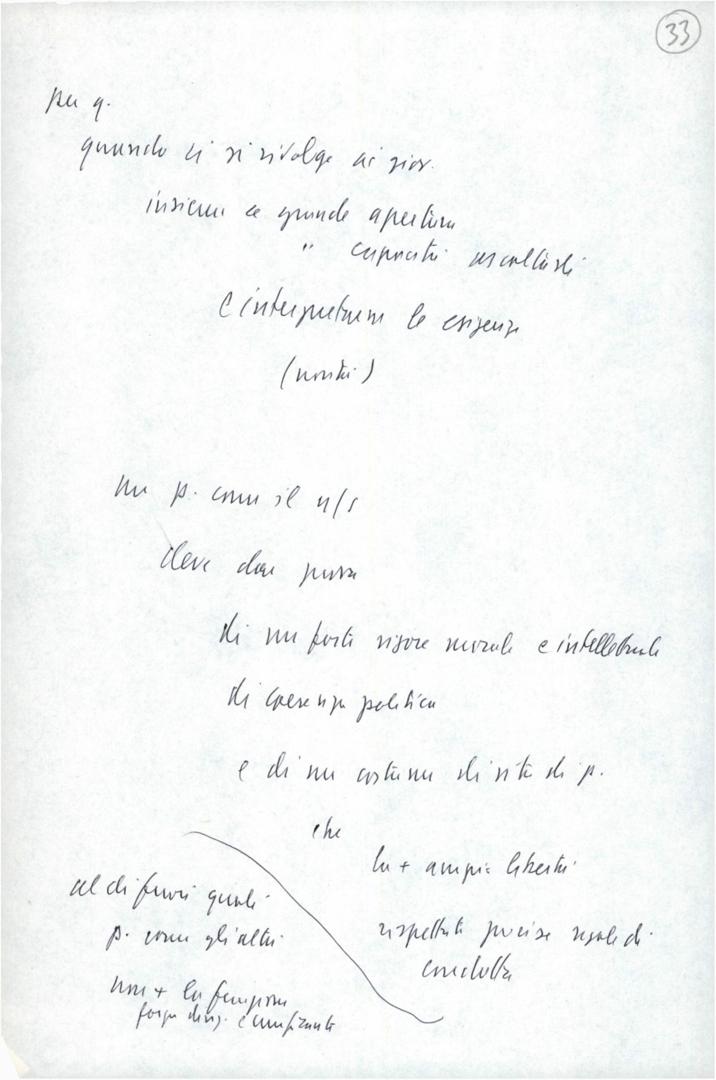 33
per q.
quando ci si rivolge ai giov.
insieme a grande apertura
" capacità ascoltarli
e interpretarne le esigenze
(novità)
un p. come il n/s
deve dare prova
di un forte rigore morale e intellettuale
di coerenza politica
e di un costume di vita di p.
che
la + ampia libertà
al di fuori quali
p. come gli altri
rispettate precise regole di
condotta
non + la funzione
forza dirig. e